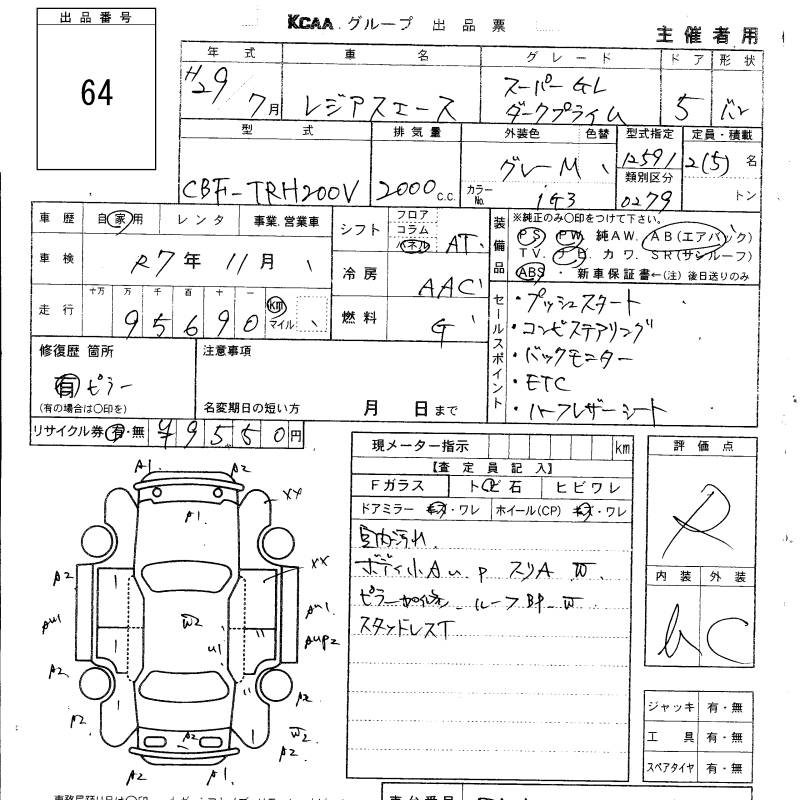 出品番号
64
KCAA グループ 出品票
主催者用
年式 車名 グレード ドア 形状
H29/7月 レジアスエース スーパーGL ダークプライム 5 バン
型式 排気量 外装色 色替 型式指定 定員・積載
CBF-TRH200V 2000c.c. グレーM カラーNo. 1G3 12591 2(5)名
類別区分
0279 トン
車歴 自家用 レンタ 事業.営業車
シフト フロア コラム パネル AT
装備品 ※純正のみ○印をつけて下さい。
PS PW 純AW. AB(エアバック)
TV. ナビ カワ. SR(サンルーフ)
ABS ・ 新車保証書←(注) 後日送りのみ
車検 R7年11月
冷房 AAC
走行 十万 万 千 百 十 一
95690 km マイル
燃料 G
セールスポイント
・プッシュスタート
・コンビステアリング
・バックモニター
・ETC
・ハーフレザーシート
修復歴 箇所
有 ピラー
(有の場合は○印を)
注意事項
名変期日の短い方 月 日まで
リサイクル券 有・無 ¥9550円
現メーター指示 km
【査定員記入】
Fガラス トビ石 ヒビワレ
ドアミラー キズ・ワレ ホイール(CP) キズ・ワレ
室内汚れ
ボディ小AuP スリA W
ルーフBP-W
スタッドレスT
評価点
R
内装 外装
C
ジャッキ 有・無
工具 有・無
スペアタイヤ 有・無
A1 A2
A1
XX
XX
A2
AU1
A2
A2
W2
U1
AU1
AUP2
A2
W2
A2
A2
A2 A1
車台番号